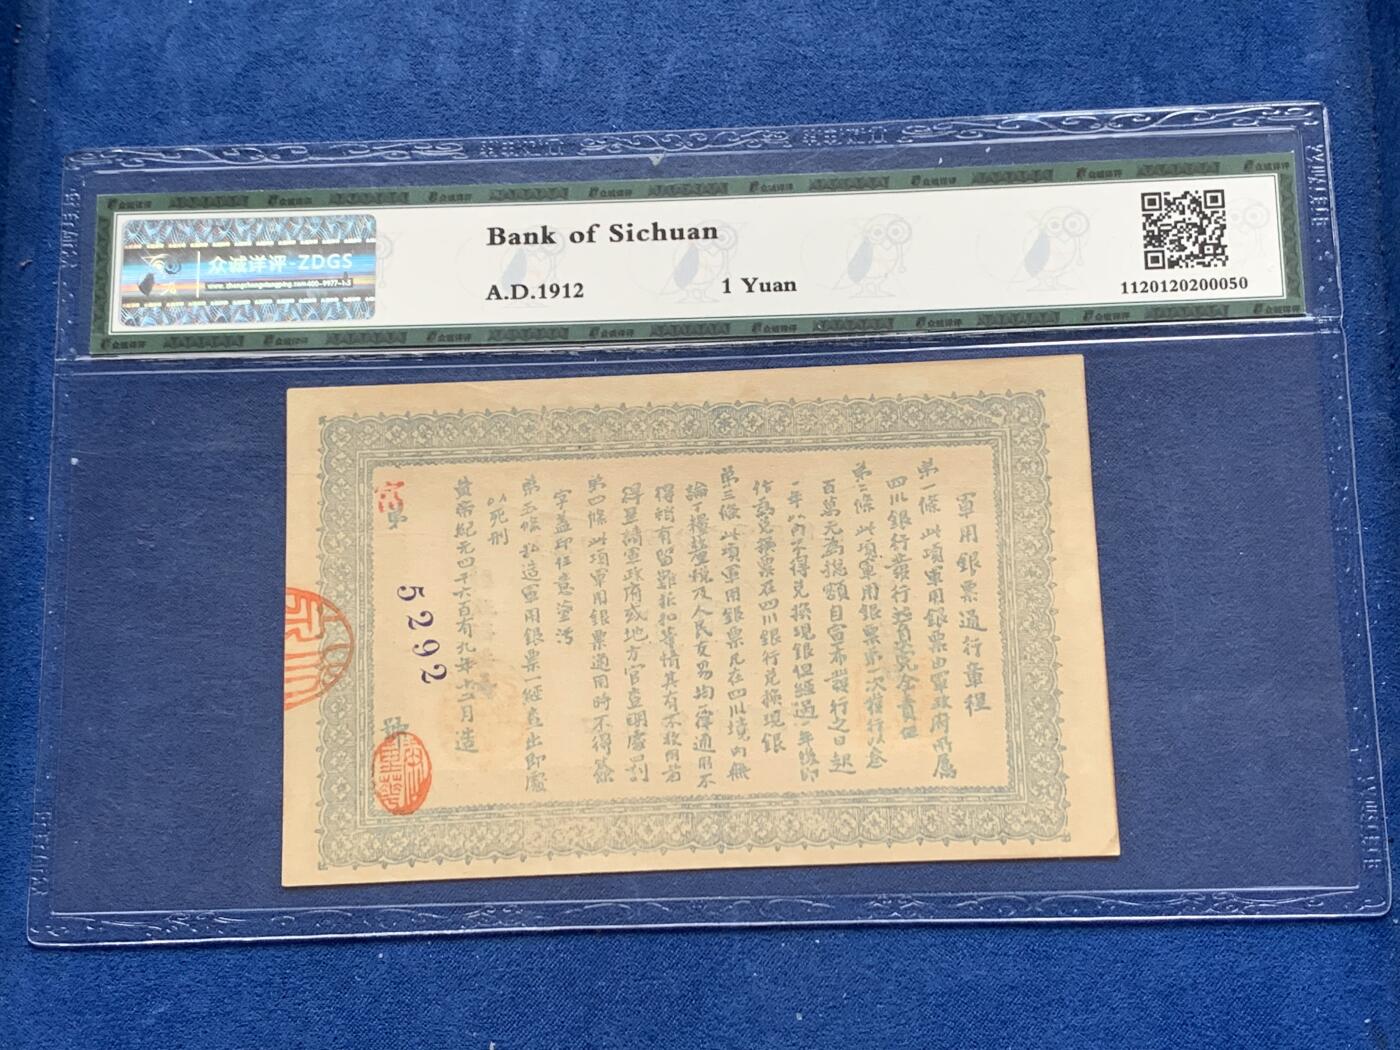 众诚详评-ZDGS
Bank of Sichuan
A.D.1912
1 Yuan
1120120200050
軍用銀票通行章程
第一條此項軍用銀票由軍政府所屬
四川銀行發行
第二條此項軍用銀票第一次發行以叁
百萬元為總額自宣布發行之日起
一年以內不得兌換現銀但經過一年後即
作為兌換票在四川銀行兌換現銀
第三條此項軍用銀票凡在四川境內無
論丁糧釐稅及人民交易均一律通用不
得稍有留難折扣等情其有不收用者
得呈請軍政府或地方官查明處罰
第四條此項軍用銀票通用時不得簽
字蓋印任意塗污
第五條私造軍用銀票一經查出即處
以死刑
黃帝紀元四千六百有九年十二月造
富第
5292
號